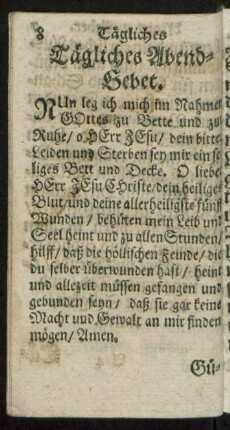 8 Tägliches
Tägliches Abend-
Gebet.
NUn leg ich mich im Nahmen
GOttes zu Bette und zu
Ruhe/ o HErr JEsu/ dein bitter
Leiden und Sterben sey mir ein se-
liges Bett und Decke. O liebe
HErr JEsu CHriste/ dein heiliges
Blut/ und deine allerheiligste fünff
Wunden/ behüten mein Leib und
Seel heint und zu allen Stunden/
hilff/ daß die höllischen Feinde/ die
du selber überwunden hast/ heint
und allezeit müssen gefangen und
gebunden seyn/ daß sie gar keine
Macht und Gewalt an mir finden
mögen/ Amen.
Gü-